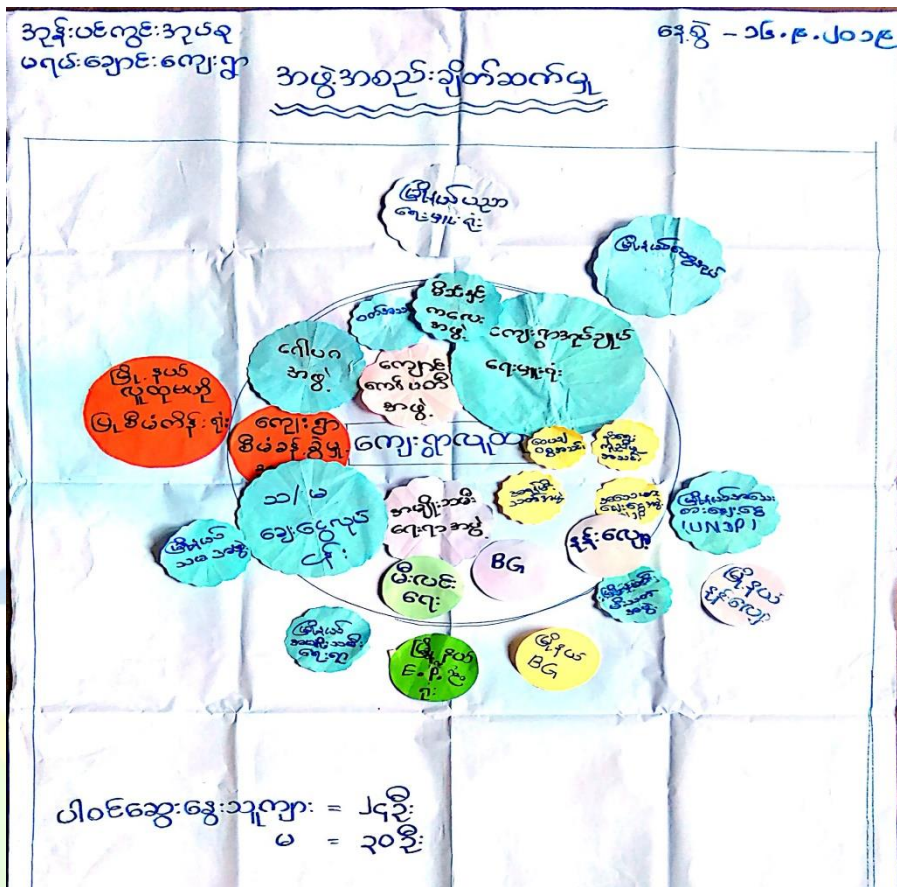 အုန်းပင်ကွင်းအုပ်စု
မရမ်းချောင်းကျေးရွာ
နေ့စွဲ - ၁၆.၉.၂၀၁၉
အဖွဲ့အစည်းချိတ်ဆက်မှု
မြို့နယ်ပညာ
ရေးမှူးရုံး
မိခင်နှင့်
ကလေး
အဖွဲ့
ကျေးရွာအုပ်ချုပ်
ရေးမှူးရုံး
ဂေါပက
အဖွဲ့
ကျောင်း
ကော်မတီ
အဖွဲ့
မြို့နယ်
လူထုဗဟို
ပြုစီမံကိန်းရုံး
ကျေးရွာ
စီမံခန့်ခွဲမှု
ကျေးရွာလူထု
သ/မ
ချေးငွေလုပ်
ငန်း
အမျိုးသမီး
ရေးရာအဖွဲ့
မြို့နယ်အသေး
စားချေးငွေ
(UNDP)
မြို့နယ်
သမအဖွဲ့
မီးလင်း
ရေး
BG
နှုန်းလျော့
မြို့နယ်
မီးသတ်
အဖွဲ့
မြို့နယ်
နှုန်းလျော့
မြို့နယ်
အမျိုးသမီး
ရေးရာ
မြို့နယ်
E.P.
ရုံး
မြို့နယ်
BG
ပါဝင်ဆွေးနွေးသူကျား = ၂၄ဦး
မ = ၃၀ဦး